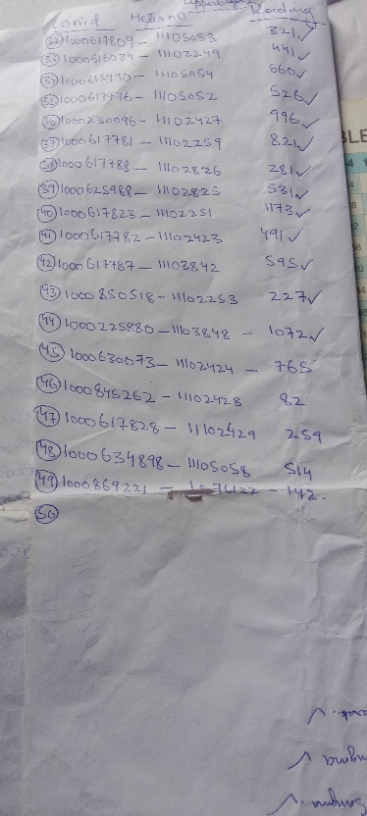 Conid Meter no Reading
(32) 1000617809 - 11105083 321✓
(33) 1000616034 - 11102249 441✓
(34) 1000618430 - 11105054 660✓
(35) 1000617776 - 11105052 526✓
(36) 1000230096 - 11102427 996✓
(37) 1000617781 - 11102259 821✓
(38) 1000617788 - 11102826 281✓
(39) 1000625988 - 11102825 531✓
(40) 1000617823 - 11102251 1173✓
(41) 1000617782 - 11102423 491✓
(42) 1000617787 - 11103842 595✓
(43) 1000850518 - 11102253 227✓
(44) 1000225880 - 1103848 - 1072✓
(45) 1000630073 - 11102424 - 765
(46) 1000845262 - 11102428 82
(47) 1000617828 - 11102429 259
(48) 1000634898 - 11105058 514
(49) 1000869221 - 142.
(50)